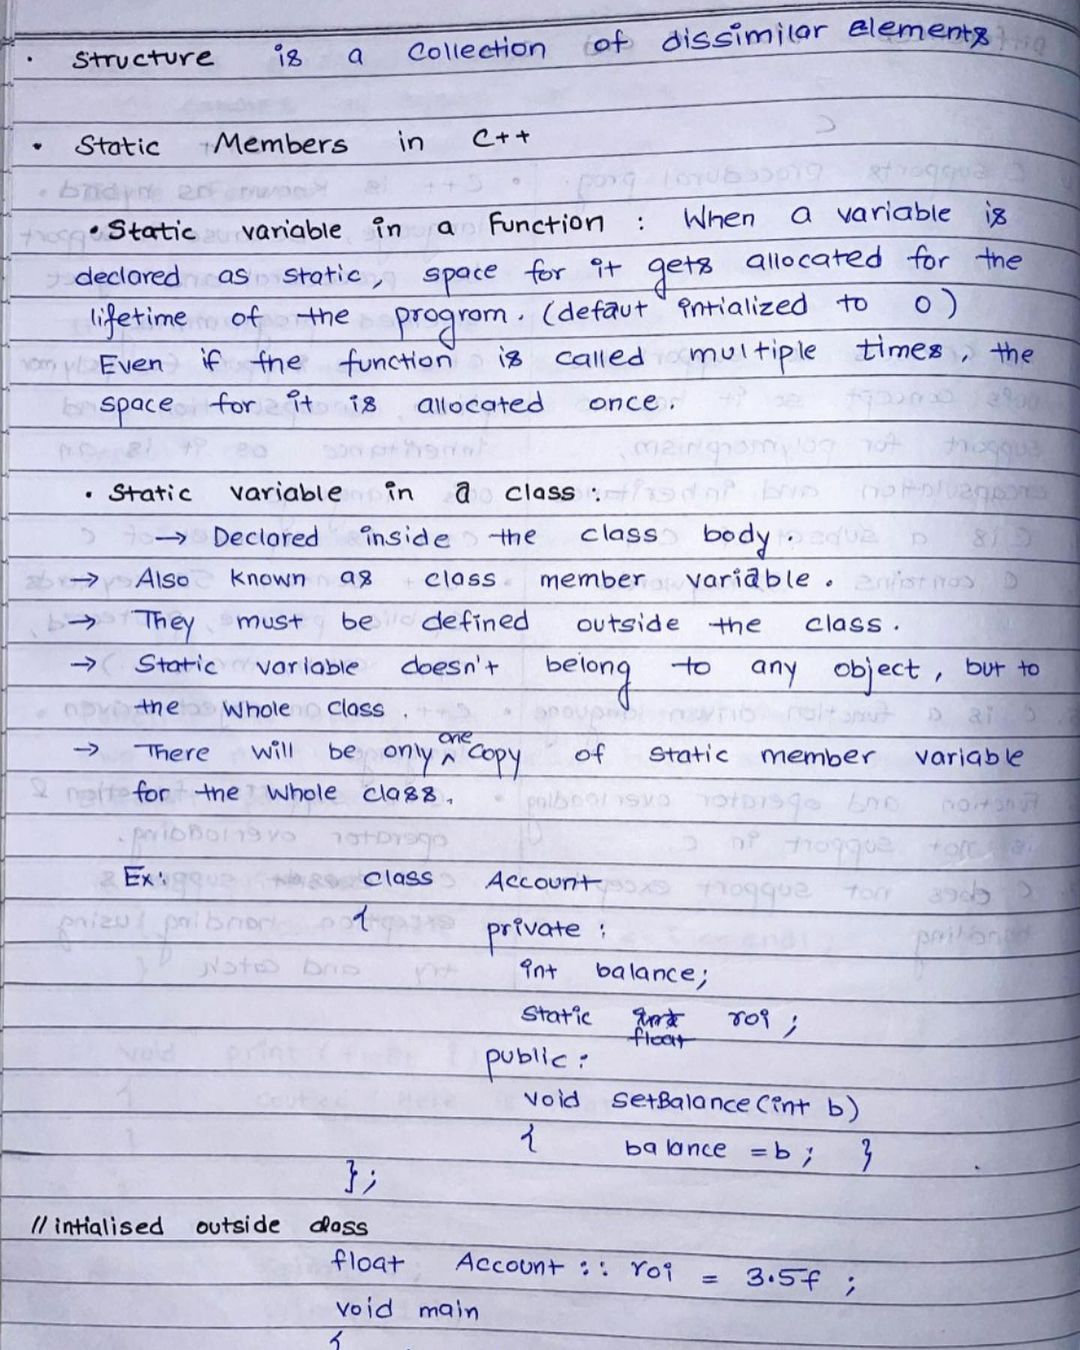 · Structure is a Collection of dissimilar elements
• Static Members in C++
• Static variable in a Function : When a variable is
declared as static, space for it gets allocated for the
lifetime of the program. (defaut intialized to 0)
Even if the function is called multiple times, the
space for it is allocated once.
• Static variable in a class :
→ Declared inside the class body.
→ Also known as class member variable.
→ They must be defined outside the class.
→ Static variable doesn't belong to any object, but to
the Whole Class.
→ There will be only one Copy of static member variable
for the whole class.
Ex: class Account
{ private :
int balance;
Static float roi ;
public :
void setBalance(int b)
{ balance = b ; }
};
// intialised outside class
float Account :: roi = 3.5f ;
void main
{